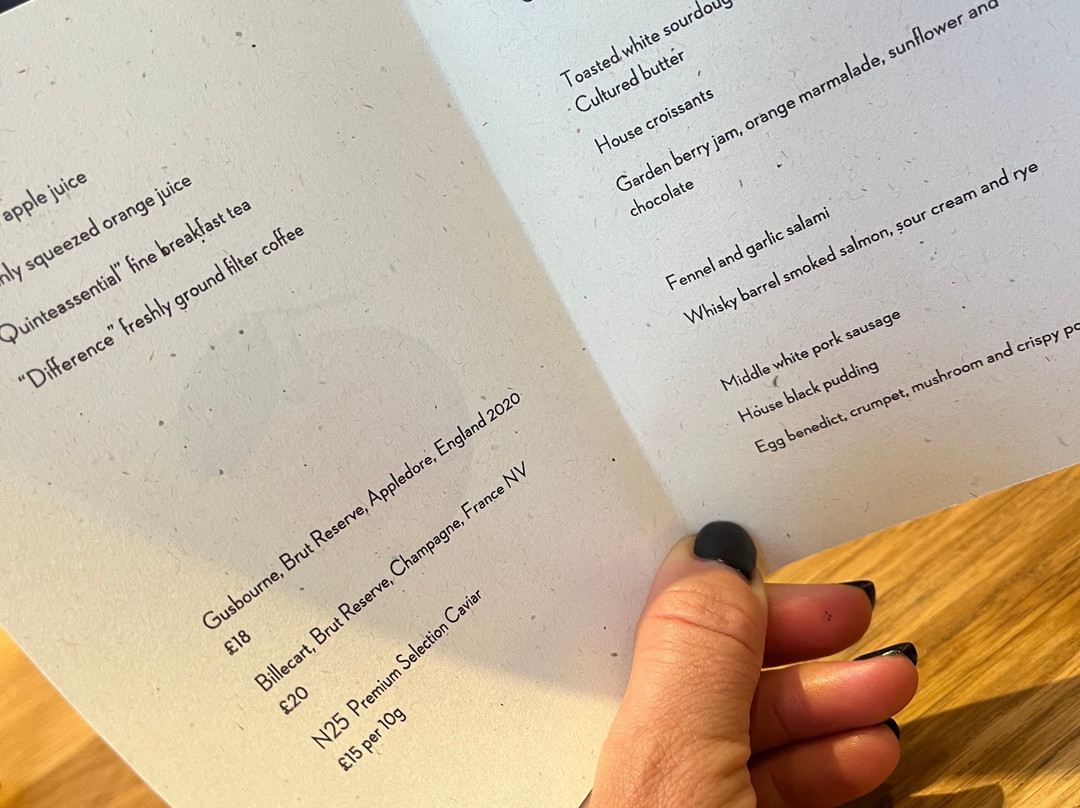 apple juice
squeezed orange juice
Quinteassential" fine breakfast tea
"Difference" freshly ground filter coffee
Gusbourne, Brut Reserve, Appledore, England 2020
£18
Billecart, Brut Reserve, Champagne, France NV
£20
N25 Premium Selection Caviar
£15 per 10g
Toasted white
Cultured butter
House croissants
Garden berry jam, orange marmalade, sunflower and
chocolate
Fennel and garlic salami
Whisky barrel smoked salmon, sour cream and rye
Middle white pork sausage
House black pudding
Egg benedict, crumpet, mushroom and crispy